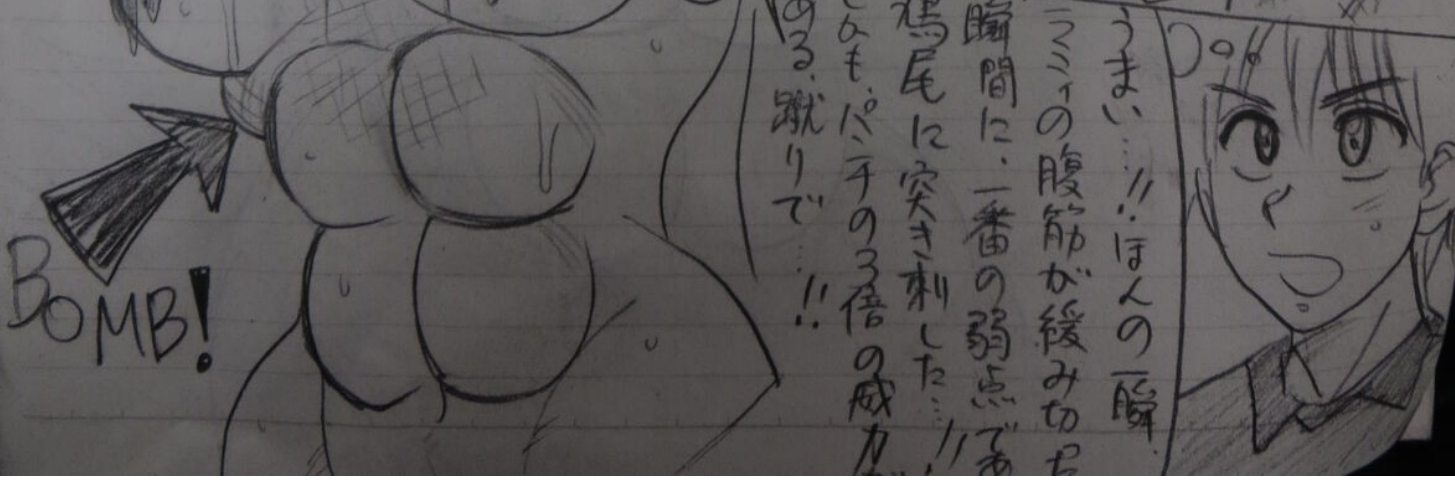 うまい…!!ほんの一瞬、
ラミィの腹筋が緩み切っ
瞬間に、一番の弱点であ
鳩尾に突き刺した…!!
しかも、パンチの3倍の威力が
ある、蹴りで…!!
BOMB!